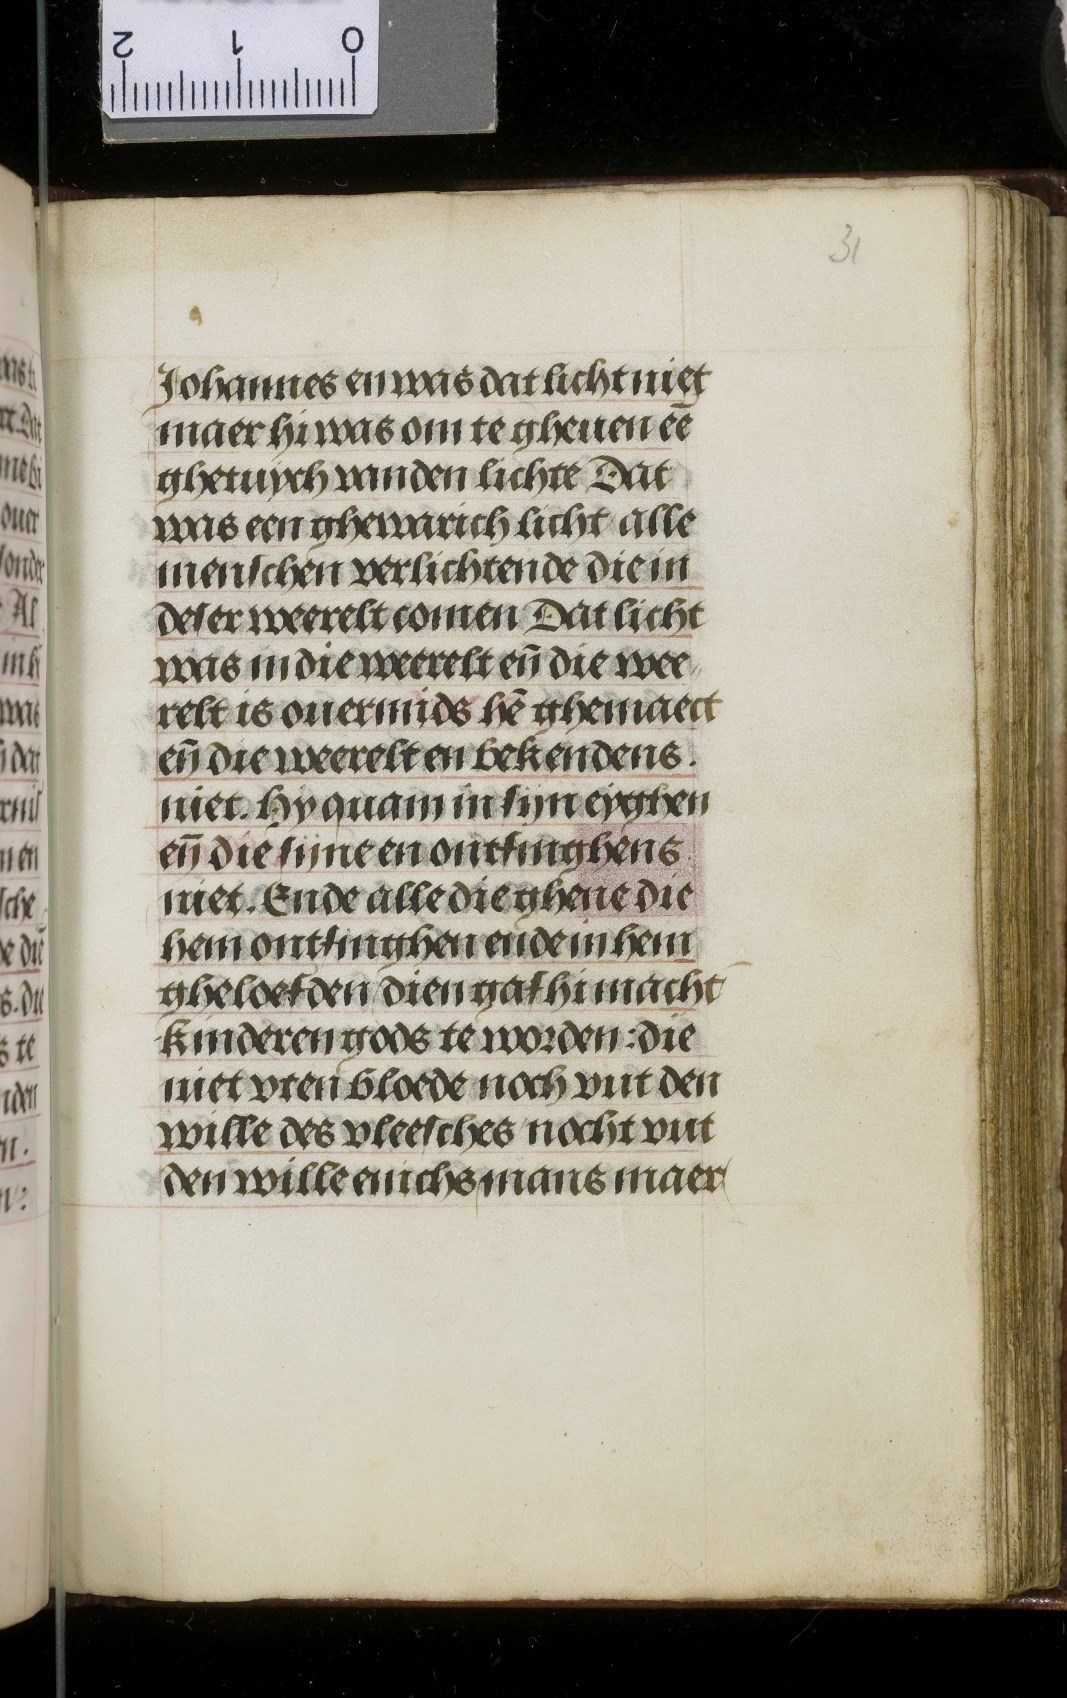 2 1 0
31
Johannes en was dat licht niet
maer hi was om te gheuen eē
ghetuych vanden lichte Dat
was een ghewarich licht alle
menschen verlichtende die in
deser weerelt comen Dat licht
was in die weerelt eñ die wee
relt is ouermids hē ghemaect
eñ die weerelt en bekendens.
niet. Hy quam in sijn eyghen
eñ die sijne en ontfinghens
niet. Ende alle die ghene die
hem ontfinghen ende in hem
gheloefden dien gaf hi macht
kinderen gods te worden: die
niet vten bloede noch vut den
wille des vleesches nocht vut
den wille enichs mans maer